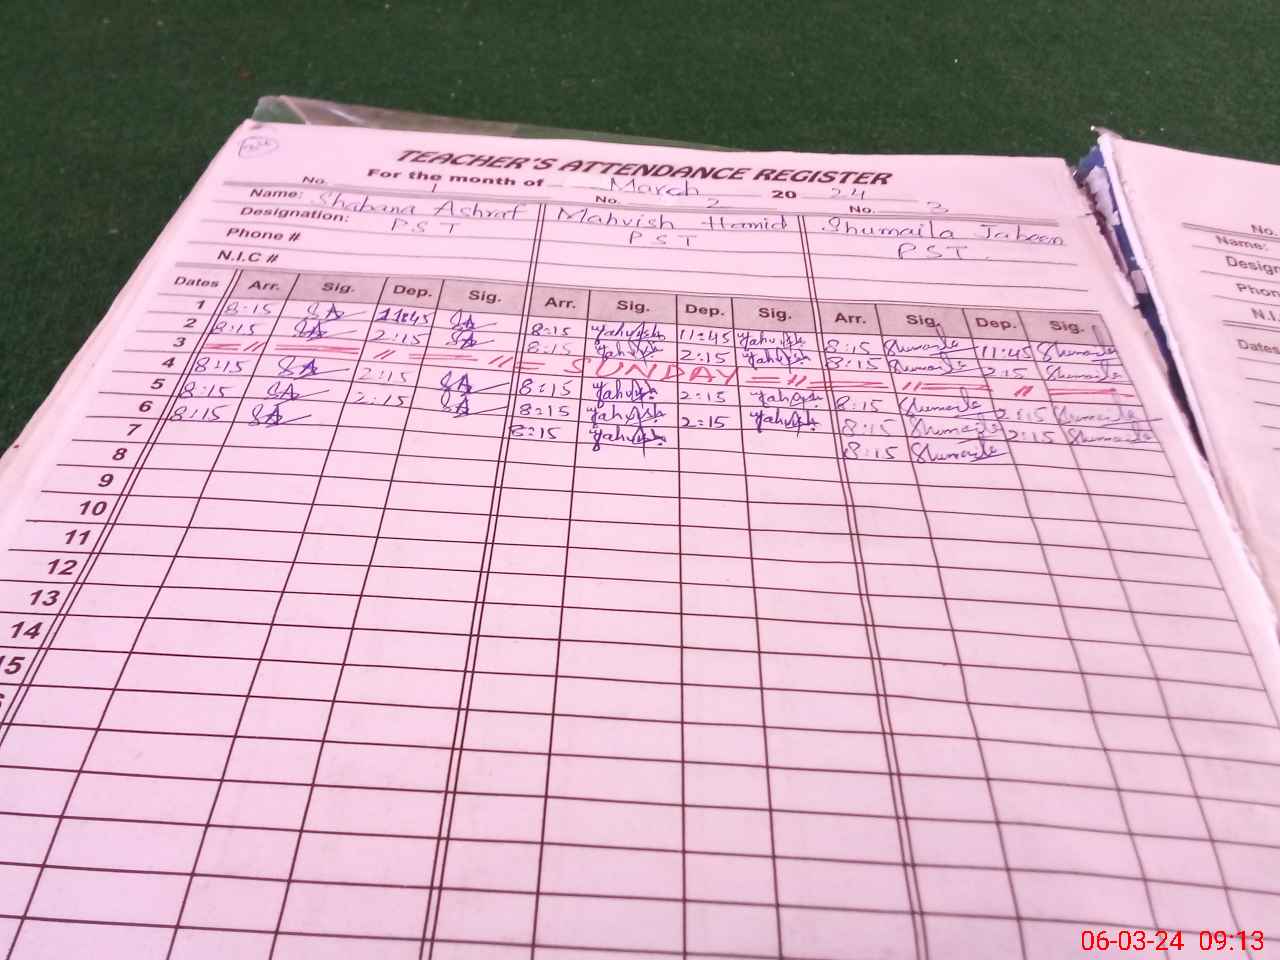 TEACHER'S ATTENDANCE REGISTER
For the month of March 2024
No. 1 No. 2 No. 3
Name: Shabana Ashraf Mahvish Hamid Shumaila Jabeen
Designation: PST PST PST.
Phone #
N.I.C #
Dates Arr. Sig. Dep. Sig. Arr. Sig. Dep. Sig. Arr. Sig. Dep. Sig.
1 8:15 SA 11:45 SA 8:15 Mahvish 11:45 Mahvish 8:15 Shumaila 11:45 Shumaila
2 8:15 SA 2:15 SA 8:15 Mahvish 2:15 Mahvish 8:15 Shumaila 2:15 Shumaila
3 = 〃 = 〃 = 〃 = SUNDAY = 〃 = 〃 = 〃 =
4 8:15 SA 2:15 SA 8:15 Mahvish 2:15 Mahvish 8:15 Shumaila 2:15 Shumaila
5 8:15 SA 2:15 SA 8:15 Mahvish 2:15 Mahvish 8:15 Shumaila 2:15 Shumaila
6 8:15 SA 8:15 Mahvish 8:15 Shumaila
7
8
9
10
11
12
13
14
15
No.
Name:
Design
Phon
N.I.
Dates
06-03-24 09:13